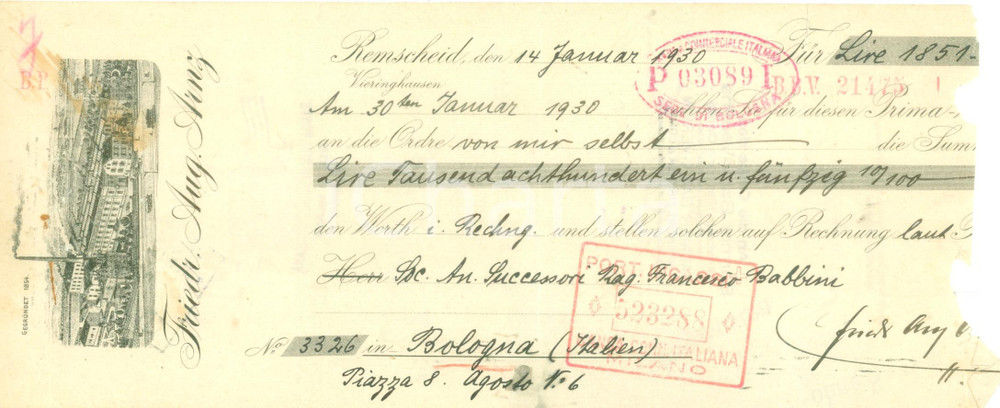 Remscheid, den 14 Januar 1930 Für Lire 1851.-
Vieringhausen
COMMERCIALE ITALIANA
P 03089 I
SEDE DI BOLOGNA
B.D.V. 21475
B.P.
Am 30ten Januar 1930 für diesen Prima-
an die Ordre von mir selbst die Summ
Lire Tausend achthundert ein u. fünfzig 10/100
den Werth i. Rechng. und stellen solchen auf Rechnung laut
Herr Soc. An. Successori Rag. Francesco Babbini
PORT
523288
ITALIANA
MILANO
No. 3326 in Bologna (Italien)
Piazza 8. Agosto No 6
Friedr. Aug. Arnz
GEGRÜNDET 1864.
Friedr. Aug